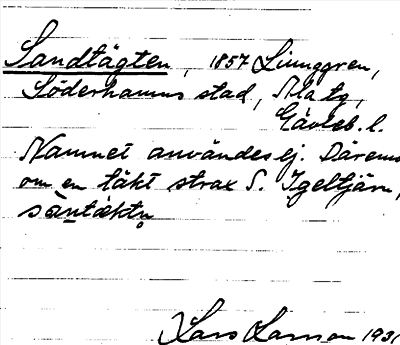 Sandtägten, 1857 Ljunggren,
Söderhamns stad, Ala tg,
Gävleb. l.
Namnet användes ej. Däremot
om en täkt strax S. Igeltjärn,
sàntæktn
Lars Larson 1931